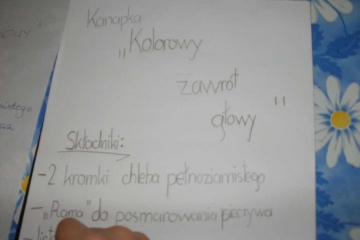 Kanapka
„Kolorowy
zawrót
głowy"
Składniki:
-2 kromki chleba pełnoziarnistego
-„Rama" do posmarowania pieczywa